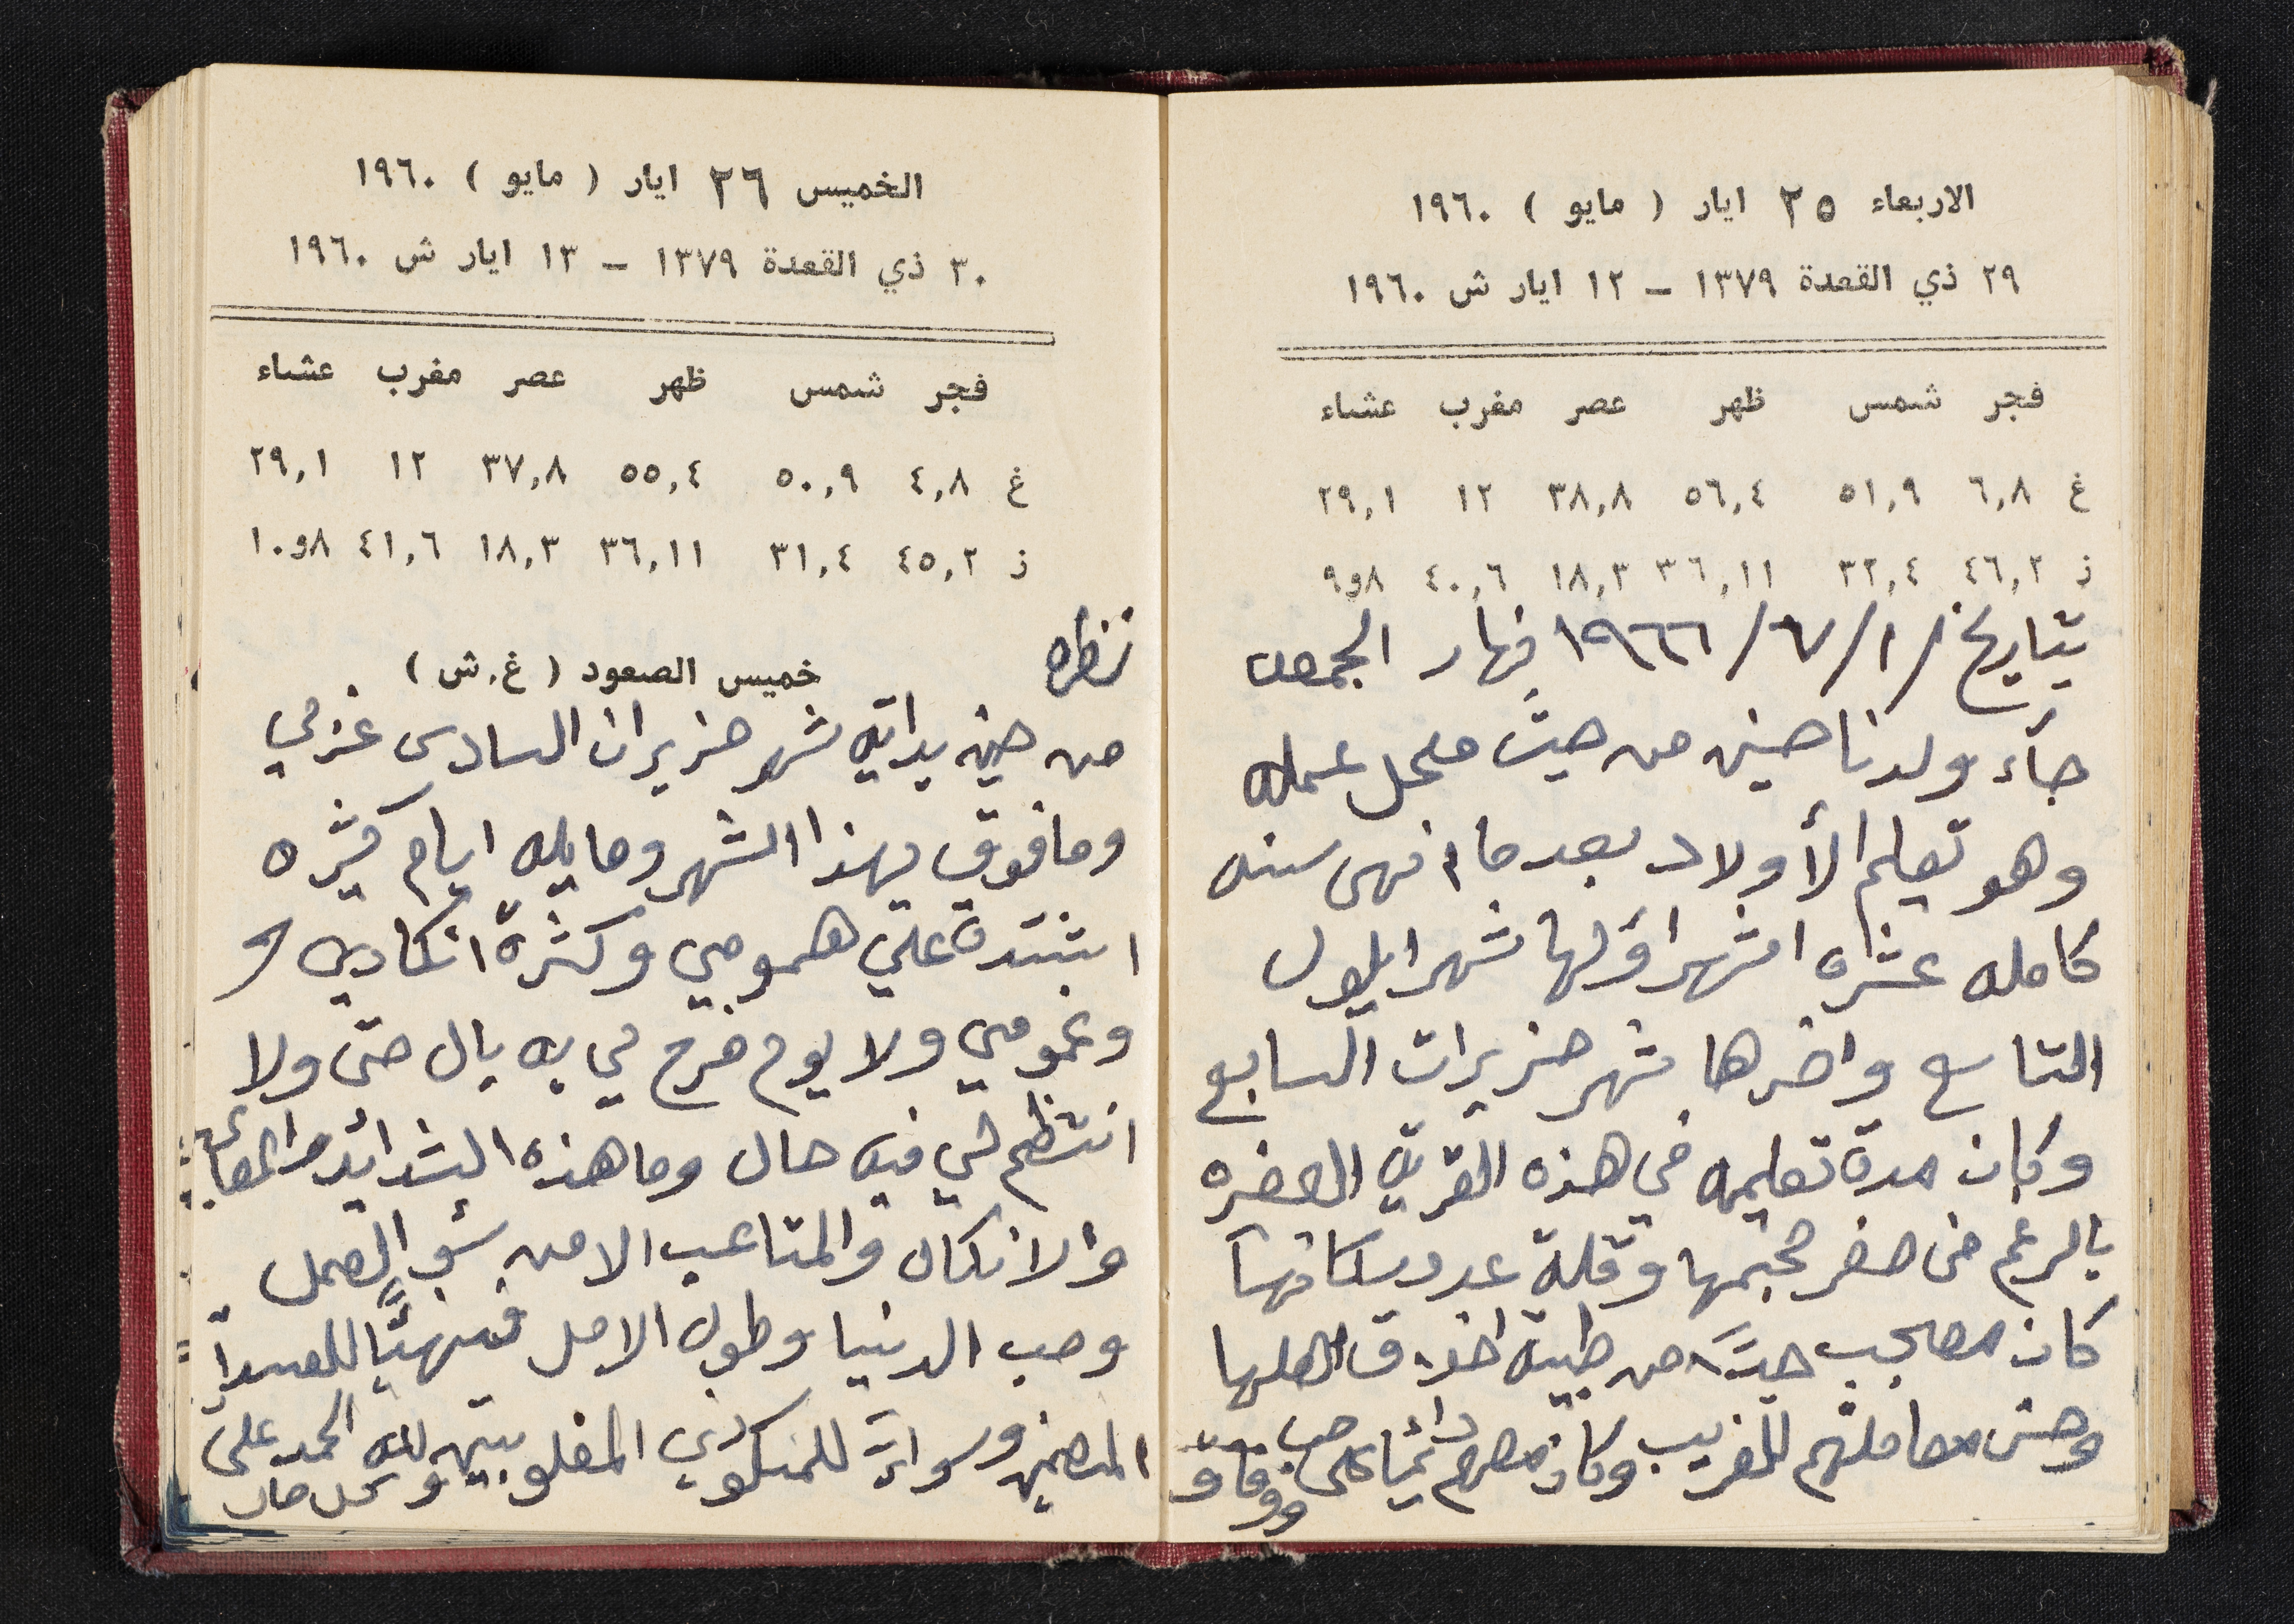 الاربعاء ٢٥ ايار ( مايو ) ١٩٦٠
٢٩ ذي القعدة ١٣٧٩ – ١٢ ايار ش ١٩٦٠
فجر شمس ظهر عصر مغرب عشاء
غ ٦,٨ ٥١,٩ ٥٦,٤ ٣٨,٨ ١٢ ٢٩,١
ز ٤٦,٢ ٣٢,٤ ٣٦,١١ ١٨,٣ ٤٠,٦ ٨و٩
بتاريخ ١/٧/١٩٦٦ نهار الجمعه
جآء ولدنا حسين من حيث محل عمله
وهو تعليم الأولاد بعد ما انهى سنه
كامله عشره اشهر اوّلها شهر ايلول
التاسع واخرها شهر حزيران السابع
وكان مدة تعليمه في هذه القريه الصغيره
بالرغم من صغر حجمها وقلة عدد سكانها
كان معجب جدًا من طيبه اخلاق اهلها
وحسن معاملتهم للغريب وكان معهم دائما على حب
ووفاق
الخميس ٢٦ ايار ( مايو ) ١٩٦٠
٣٠ ذي القعدة ١٣٧٩ – ١٣ ايار ش ١٩٦٠
فجر شمس ظهر عصر مغرب عشاء
غ ٤,٨ ٥٠,٩ ٥٥,٤ ٣٧,٨ ١٢ ٢٩,١
ز ٤٥,٢ ٣١,٤ ٣٦,١١ ١٨,٣ ٤١,٦ ٨و١٠
نظره
خميس الصعود ( غ.ش )
من حين بدايه شهر حزيران السادس غربي
وما فوق بهذا الشهر وما يليه ايام كثيره
اشتدة علي همومي وكثرة انكادي
وغمومي ولا يوم فرح لي به بال حتى ولا
انتظم لي فيه حال وما هذه الشدائد والمصائب
والانكاد والمتاعب الا من سوء العمل
وحب الدنيا وطول الامل فنهيًا للعبدا
المنعمين وسواء للمنكودي المغلوبين ولله الحمد على
كل حال